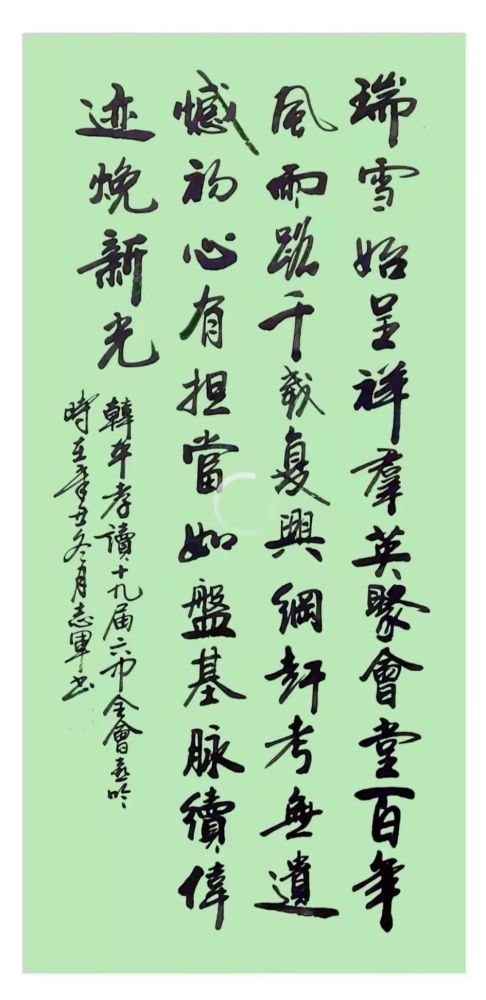 瑞雪始呈祥羣英聚會堂百年
風雨路千載复興綱赶考無遺
憾初心有担當如盤基脉續偉
迹焕新光
韓平孝讀十九届六中全會喜吟
時在辛丑冬月志軍书